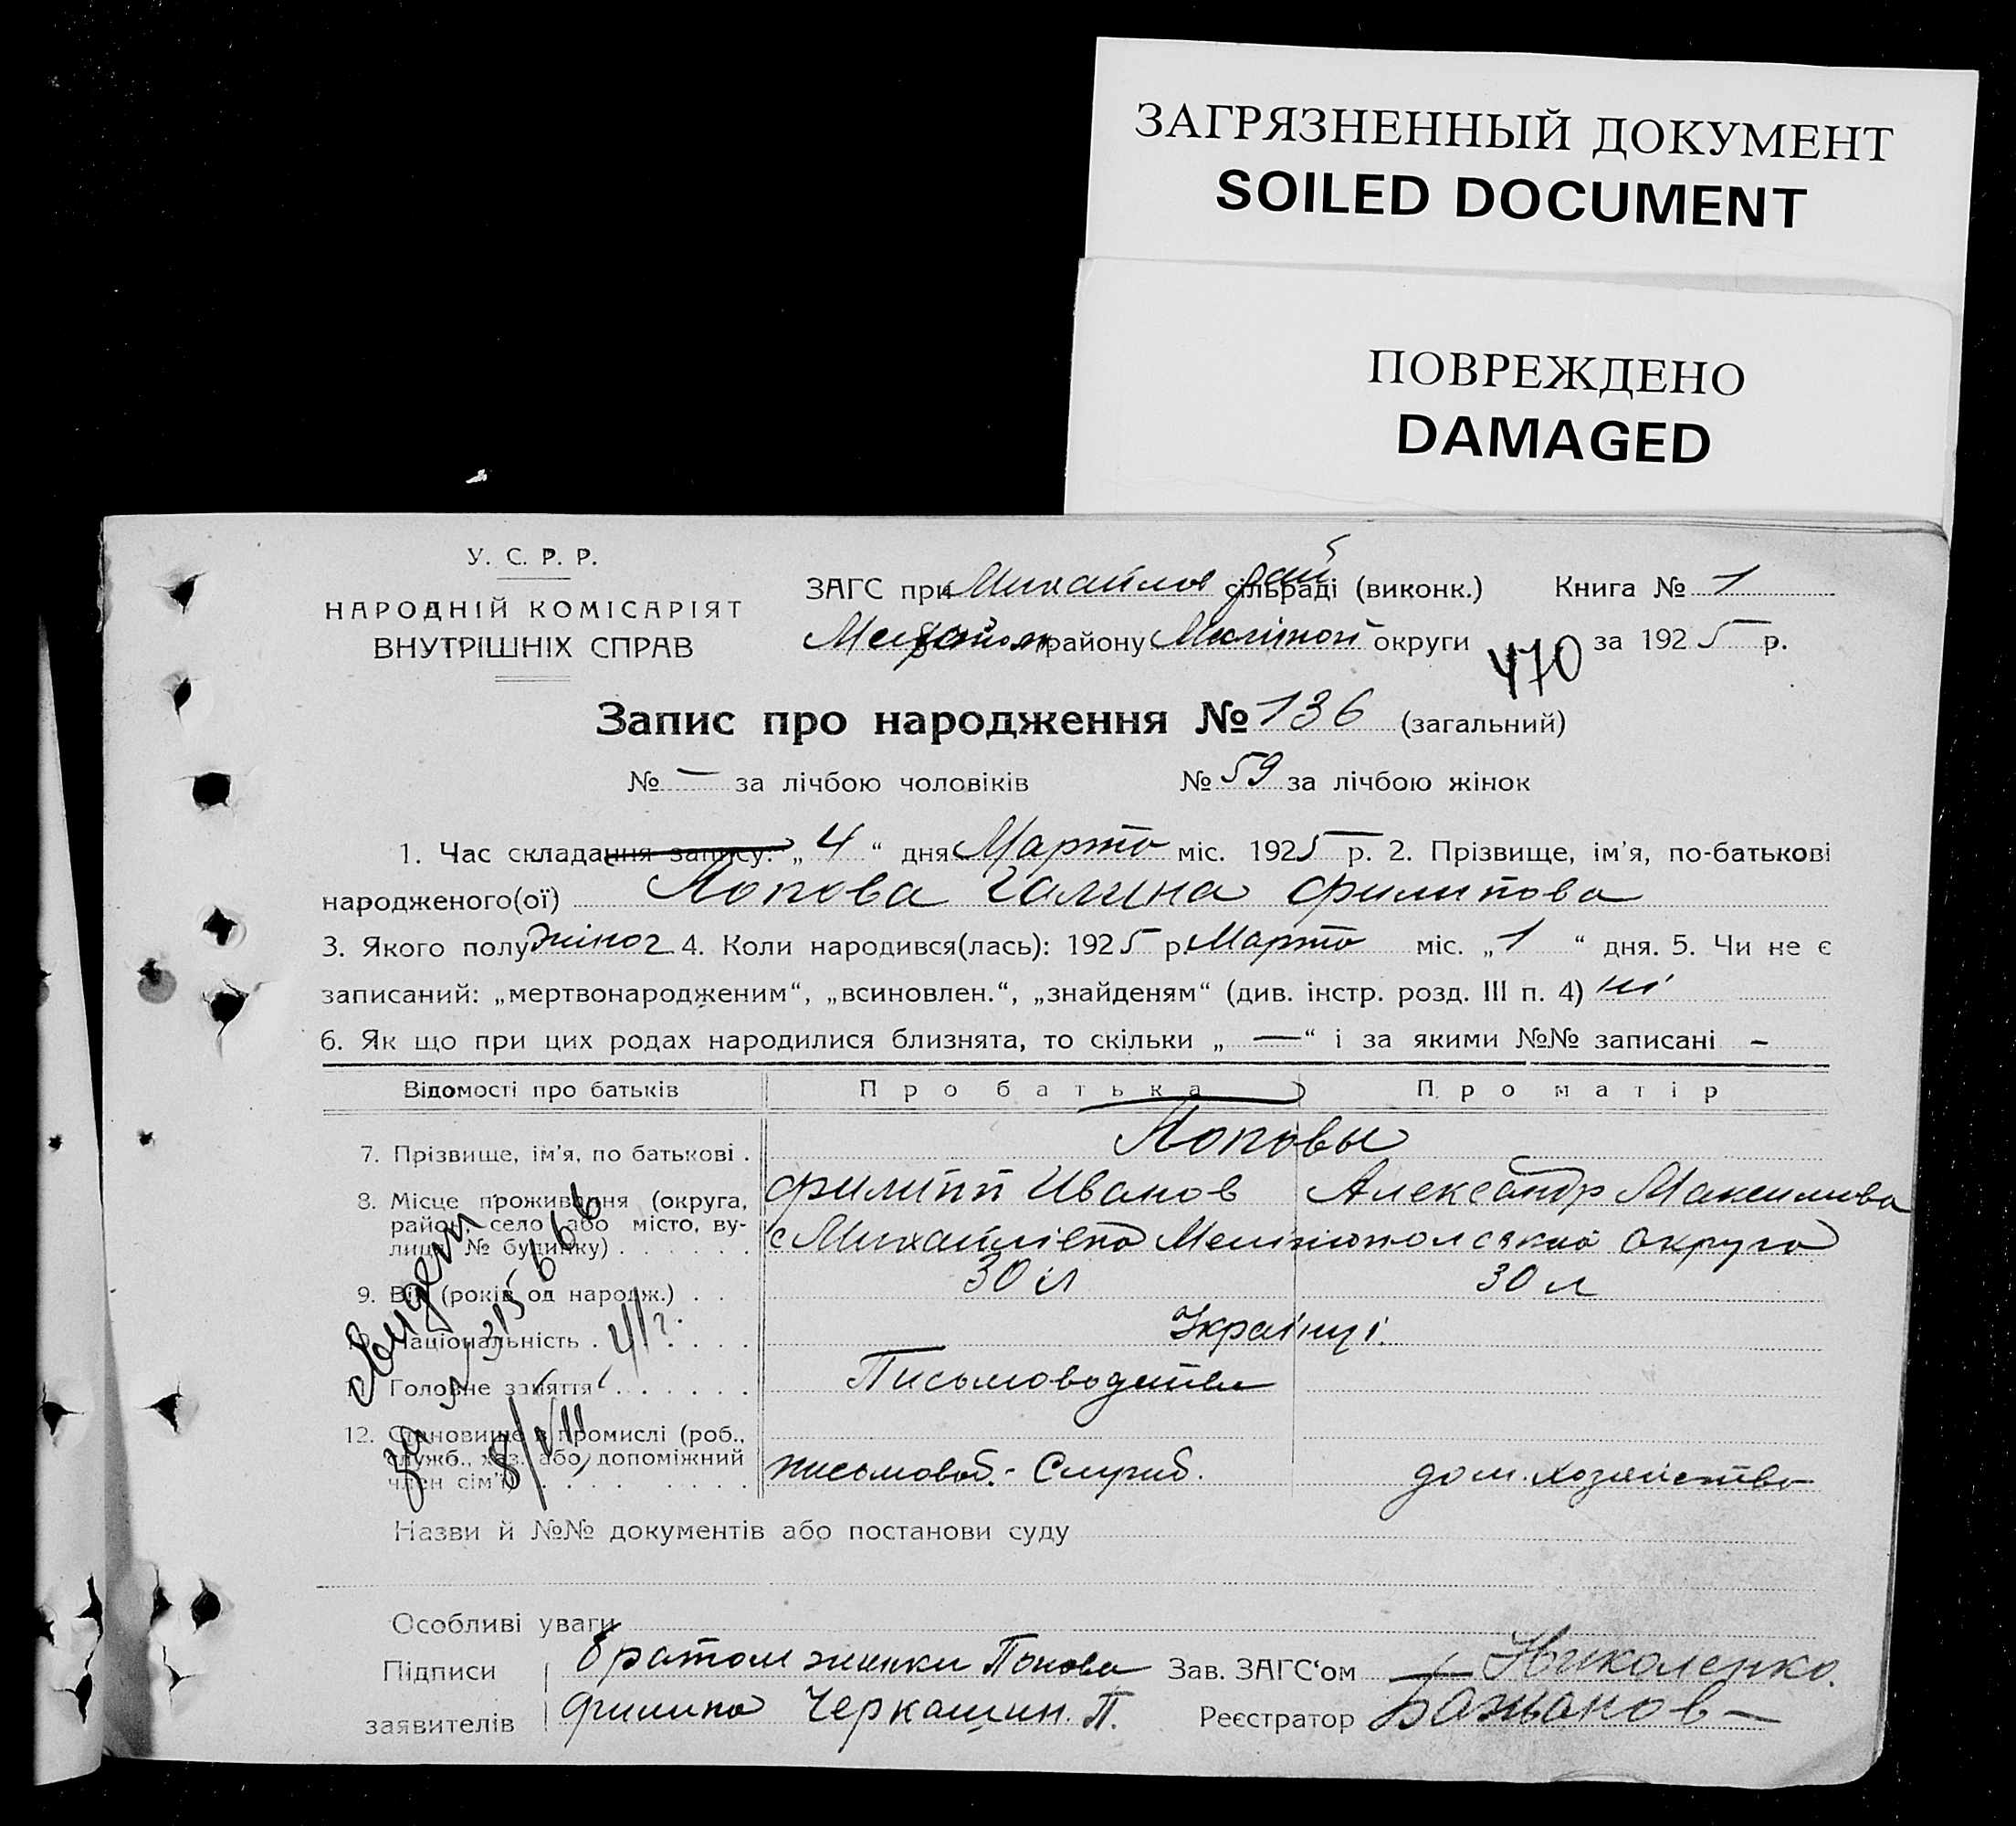 ЗАГРЯЗНЕННЫЙ ДОКУМЕНТ
SOILED DOCUMENT
ПОВРЕЖДЕНО
DAMAGED
У. С. Р. Р.
НАРОДНІЙ КОМІСАРІЯТ
ВНУТРІШНІХ СПРАВ
ЗАГС при Михайлов рай сільраді (виконк.) Книга № 1
району Мелітоп округи 470 за 1925 р.
Запис про народження № 136 (загальний)
№ — за лічбою чоловіків № 59 за лічбою жінок
1. Час складання запису: „ 4 “ дня Марта міс. 1925 р. 2. Прізвище, ім'я, по-батькові
народженого(ої) Попова Галина Филипова
3. Якого полу жіноч 4. Коли народився(лась): 1925 р. Марта міс. „ 1 “ дня. 5. Чи не є
записаний: „мертвонародженим“, „всиновлен.“, „знайденям“ (див. інстр. розд. III п. 4) ні
6. Як що при цих родах народилися близнята, то скільки „ — “ і за якими №№ записані -
Відомості про батьків Про батька Про матір
7. Прізвище, ім'я, по батькові . Поповы
8. Місце проживання (округа, Филипп Иванов Александр Максимова
район, село або місто, ву-
лиця, № будинку) . . . . . . с Михайлівка Мелітопольскаа округа
9. Вік (років од народж.) . . 30 л 30 л
10. Національність . . . . . Українці
11. Головне заняття . . . . . . Письмоводитель
12. Становище в промислі (роб.,
служб., хаз. або допоміжний письмовод. - Служб. дом. хозяйство
член сім'ї) . . . . . . . .
8/VII 41 г.
Назви й №№ документів або постанови суду
Особливі уваги
Підписи братом жинки Попова Зав. ЗАГС'ом Николенко.
заявителів Филипа Черкашин. П. Реєстратор Бажанов